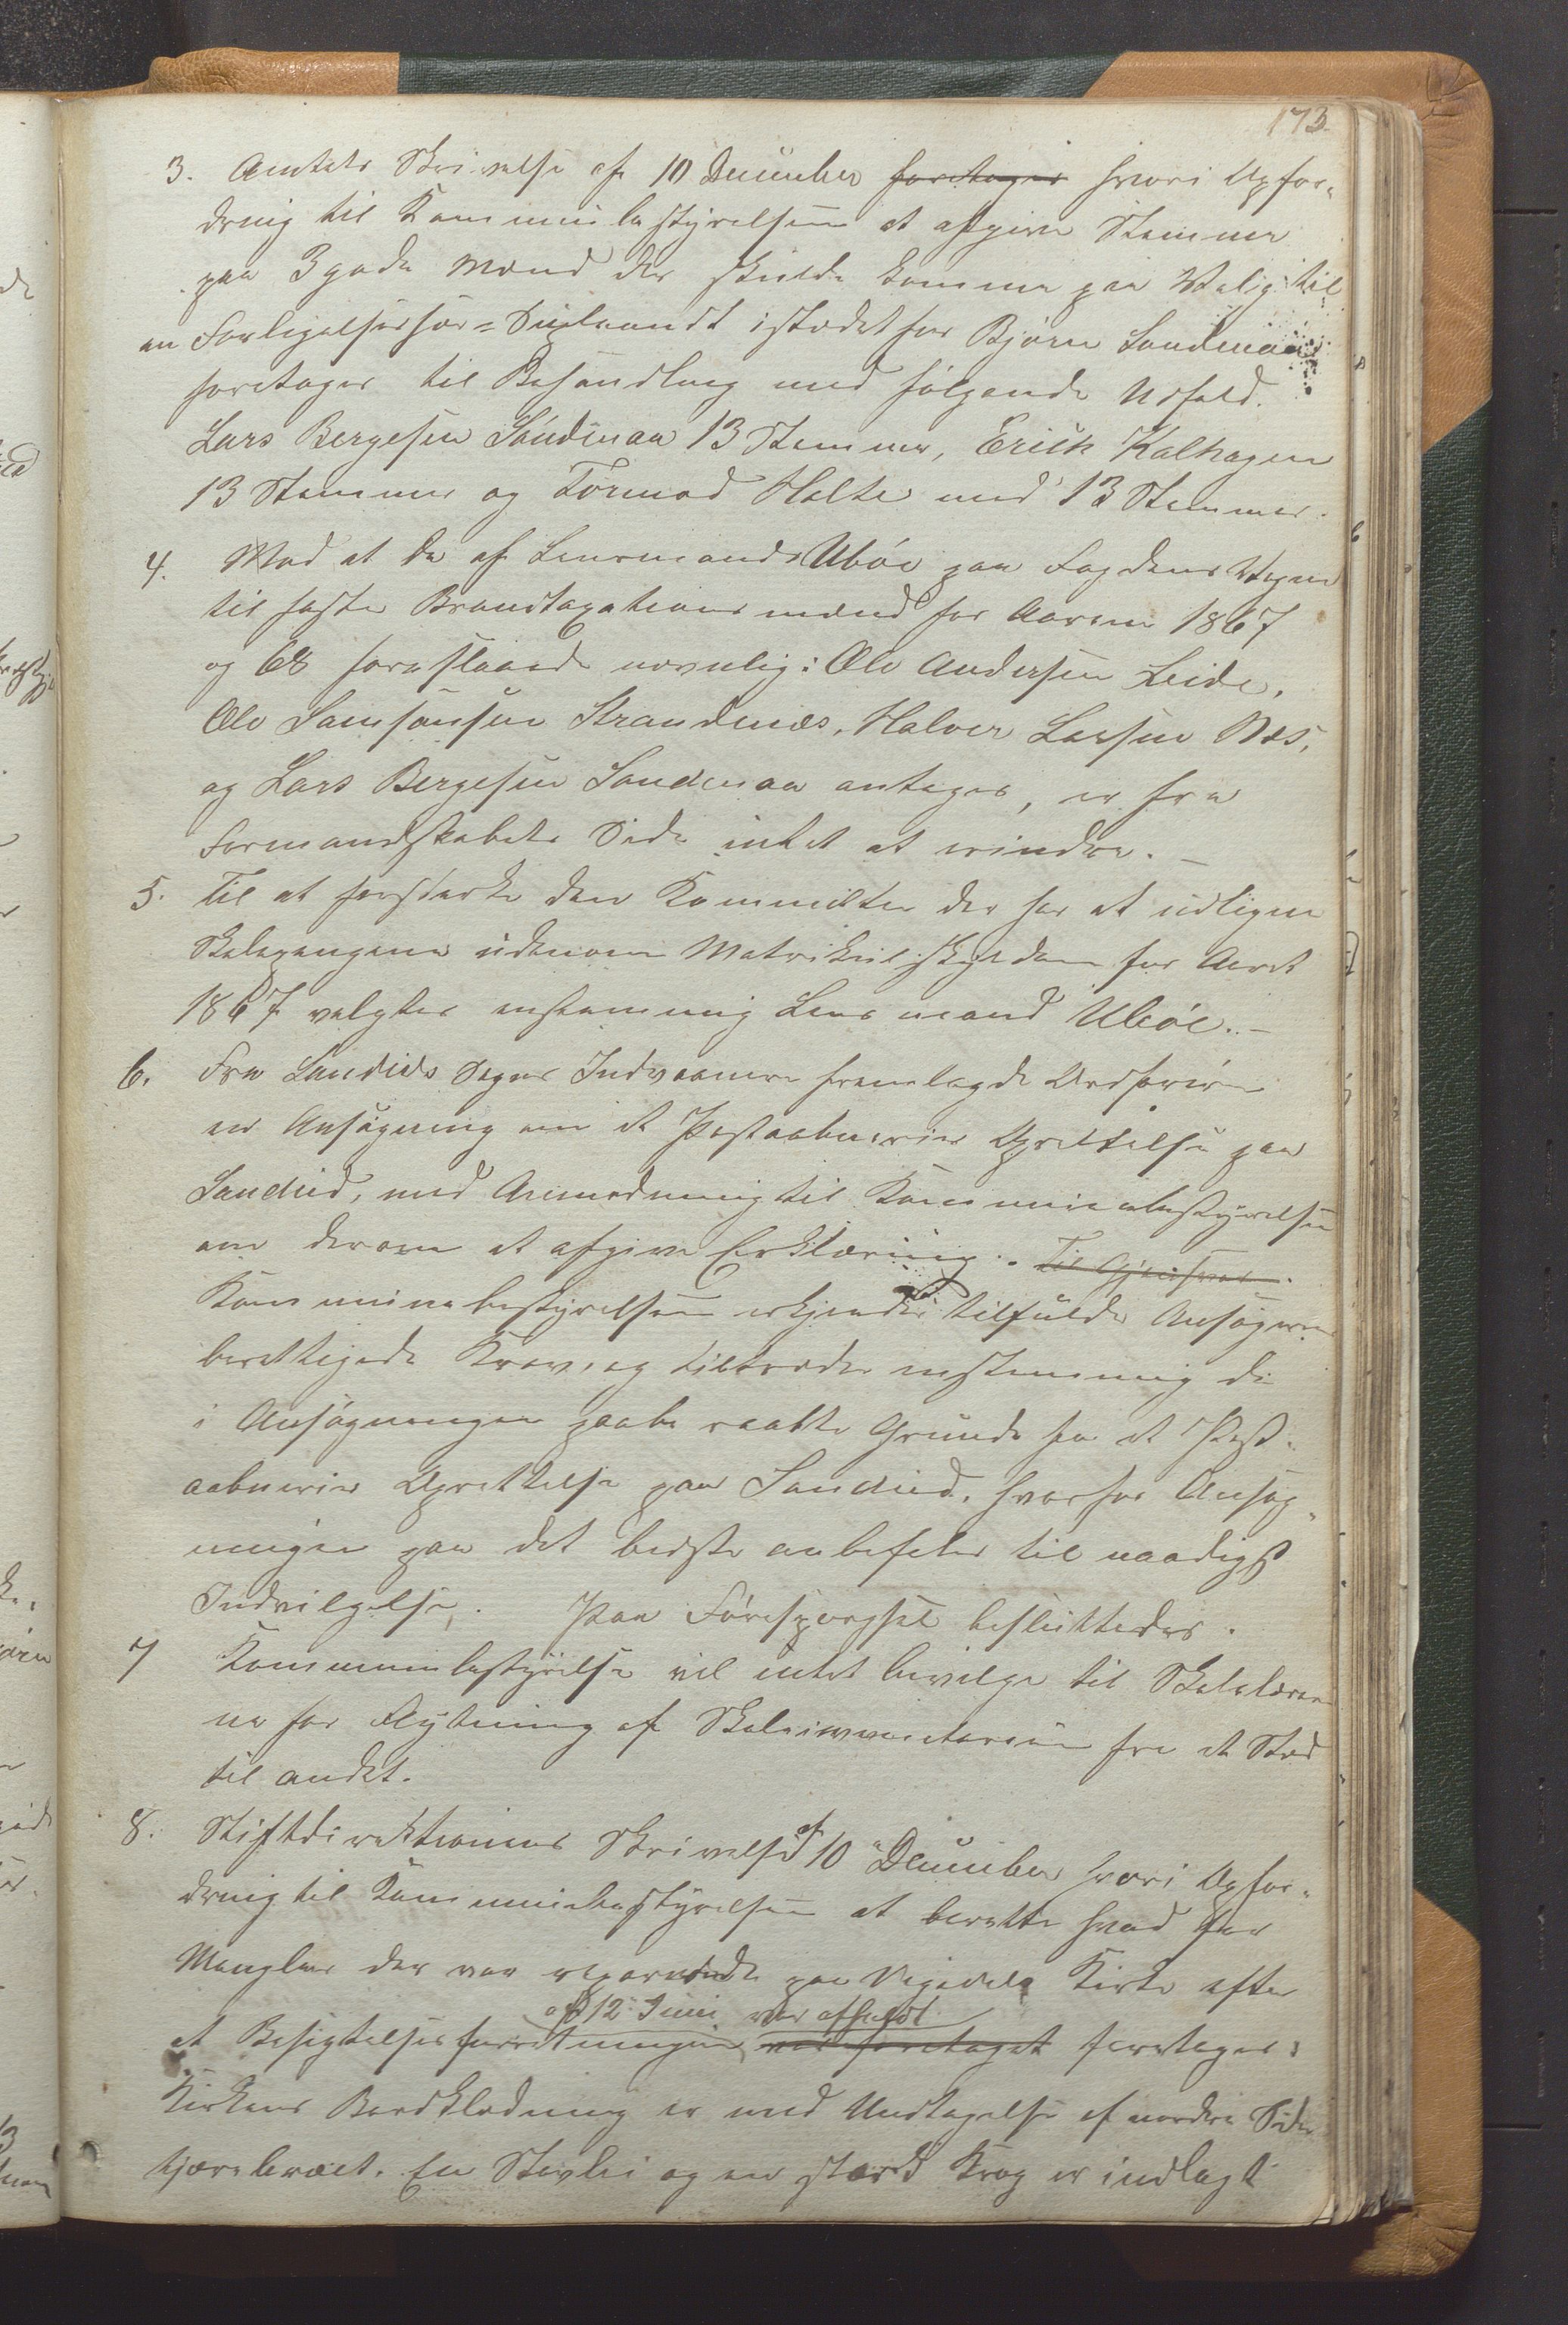 173.
3. Amtets Skrivelse af 10 December foretages hvori Opfor-
dring til Kommunebestyrelsen at afgive Stemmer
paa 3 gode Mænd der skulde komme paa Valg til
en Forligelses Supleandt istedetfor Bjørn Sandenaa
foretages til Behandling med følgende Udfald.
Lars Bergesen Sandenaa 13 Stemmer, Erick Kalhagen
13 Stemmer og Tormod Holte med 13 Stemmer.
4. Mod at de af Lensmand Ubøe paa Fogdens Vegne
til faste Brandtaxationsmænd for Aarene 1867
og 68 foreslaaede nemlig: Ole Andersen Leide,
Ole Samsonsen Strandenæs, Halvor Larsen Næs,
og Lars Bergesen Sandenaa antages, er fra
Formandskabets Side intet at erindre. –
5. Til at forstærke den Kommitte der har at udligne
Skolepengene udenom Matrikulskylden for Aaret
1867 valgtes enstemmig Lensmand Ubøe. –
6. Fra Sandeids Sogns Indvaanere fremlagde Ordføreren
en Ansøgning om et Postaabneries Oprettelse paa
Sandeid, med Anmodning til Kommunebestyrelsen
om derom at afgive Erklæring. Til Gjensvar.
Kommunebestyrelsen erkjender tilfulde Ansøgernes
berettigede Krav, og tiltræder enstemmig de
i Ansøgningen paaberaabte Grunde for et Post-
aabneries Oprettelse paa Sandeid, hvorfor Ansøg-
ningen paa det bedste anbefales til naadigst
Indvilgelse. Paa Forespørgsel besluttedes.
7 Kommunebestyrelse vil intet bevilge til Skolelærer-
ne for Flytning af Skoleinventarium fra et Sted
til andet.
8. Stiftdirektionens Skrivelse af 10 December hvori Opfor-
dring til Kommunebestyrelsen at berette hvad for
Mangler der var reparerede paa Vigedals Kirke efter
af 12 Juni var afholdt
at Besigtelsesforretningen var foretaget foretages:
Kirkens Bordklædning er med Undtagelse af nordre Side
tjærebræet. En Stavlei og en stærk Krog er indlagt